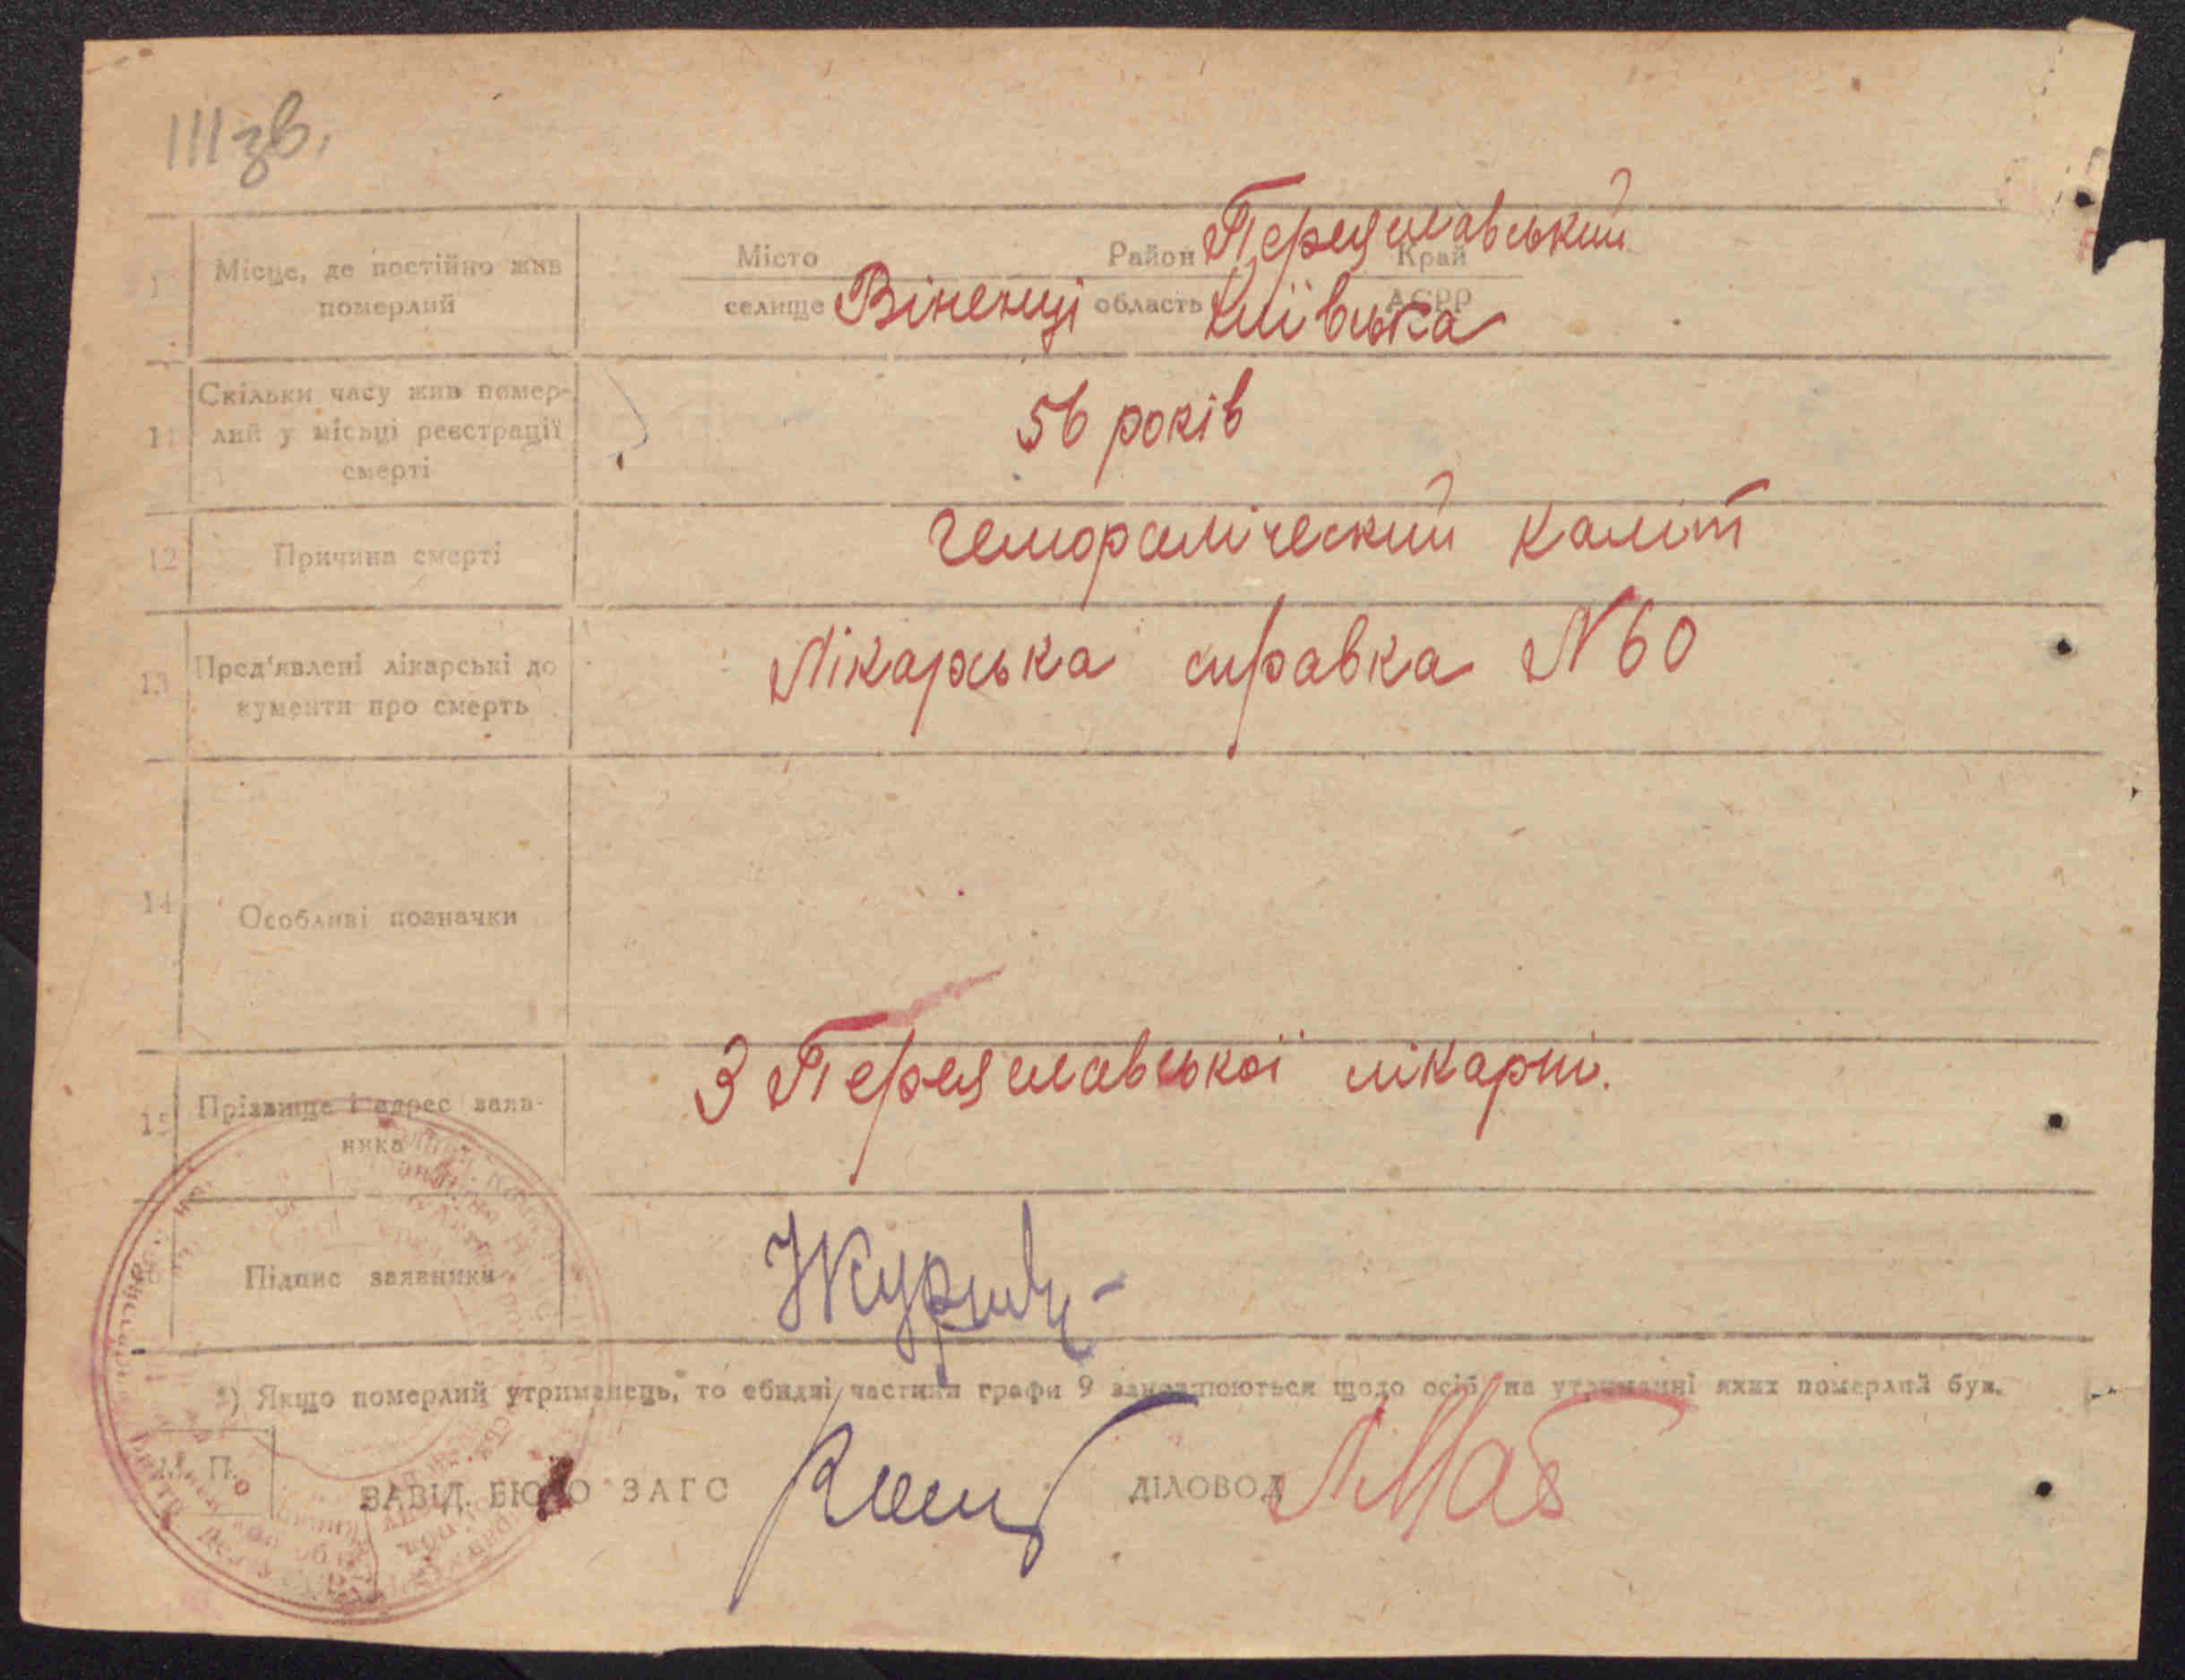 111 зв.
Переяславський
10 Місце, де постійно жив Місто Район Край
померлий селище Віненці область Київська АСРР
Скільки часу жив помер-
11 лий у місьці реєстрації 56 років
смерті
12 Причина смерті геморамічсский каліт
13 Пред'явлені лікарські до Лікарська справка N 60
кументи про смерть
14 Особливі позначки
З Переяславської лікарні.
15 Прізвище і адрес заяв-
ника
16 Підпис заявника
*) Якщо померлий утриманець, то обидві частини графи 9 заповнюються щодо осіб, на утриманні яких померлий був.
М. П.
ЗАВІД. БЮРО ЗАГС ДІЛОВОД